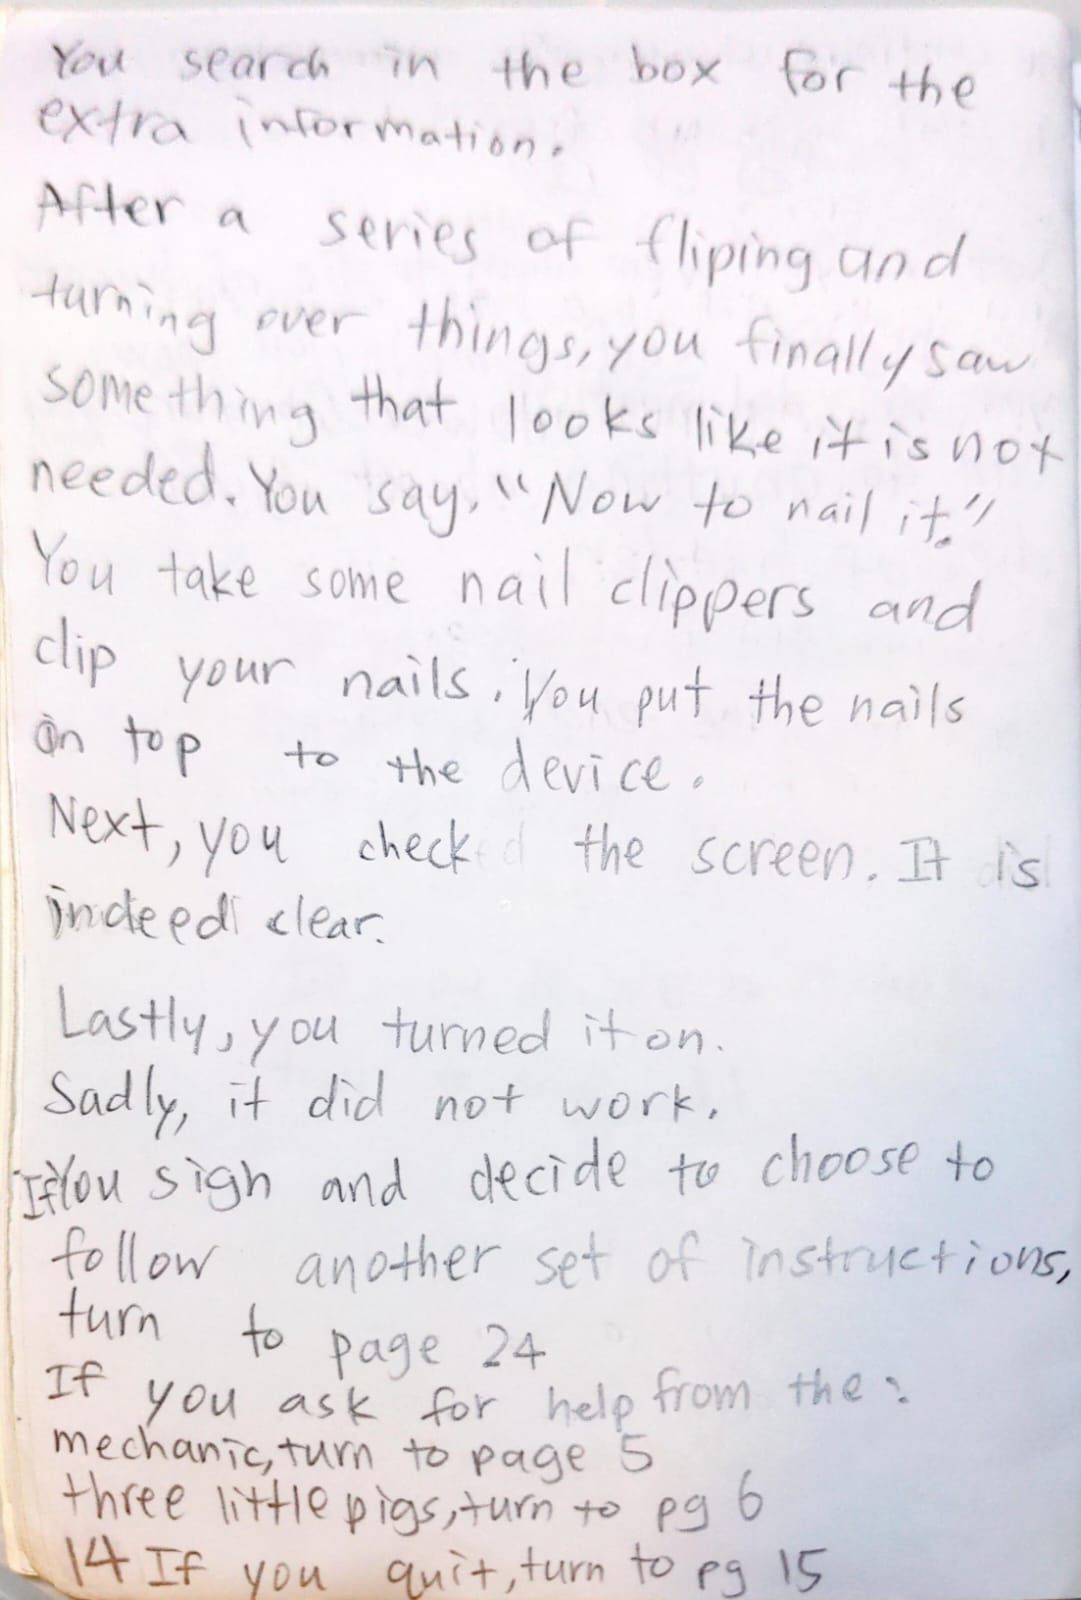 You search in the box for the
extra information.
After a series of fliping and
turning over things, you finally saw
something that looks like it is not
needed. You say, "Now to nail it."
You take some nail clippers and
clip your nails. You put the nails
on top to the device.
Next, you check the screen. It is
indeed clear.
Lastly, you turned it on.
Sadly, it did not work.
If You sigh and decide to choose to
follow another set of instructions,
turn to page 24
If you ask for help from the:
mechanic, turn to page 5
three little pigs, turn to pg 6
14 If you quit, turn to pg 15